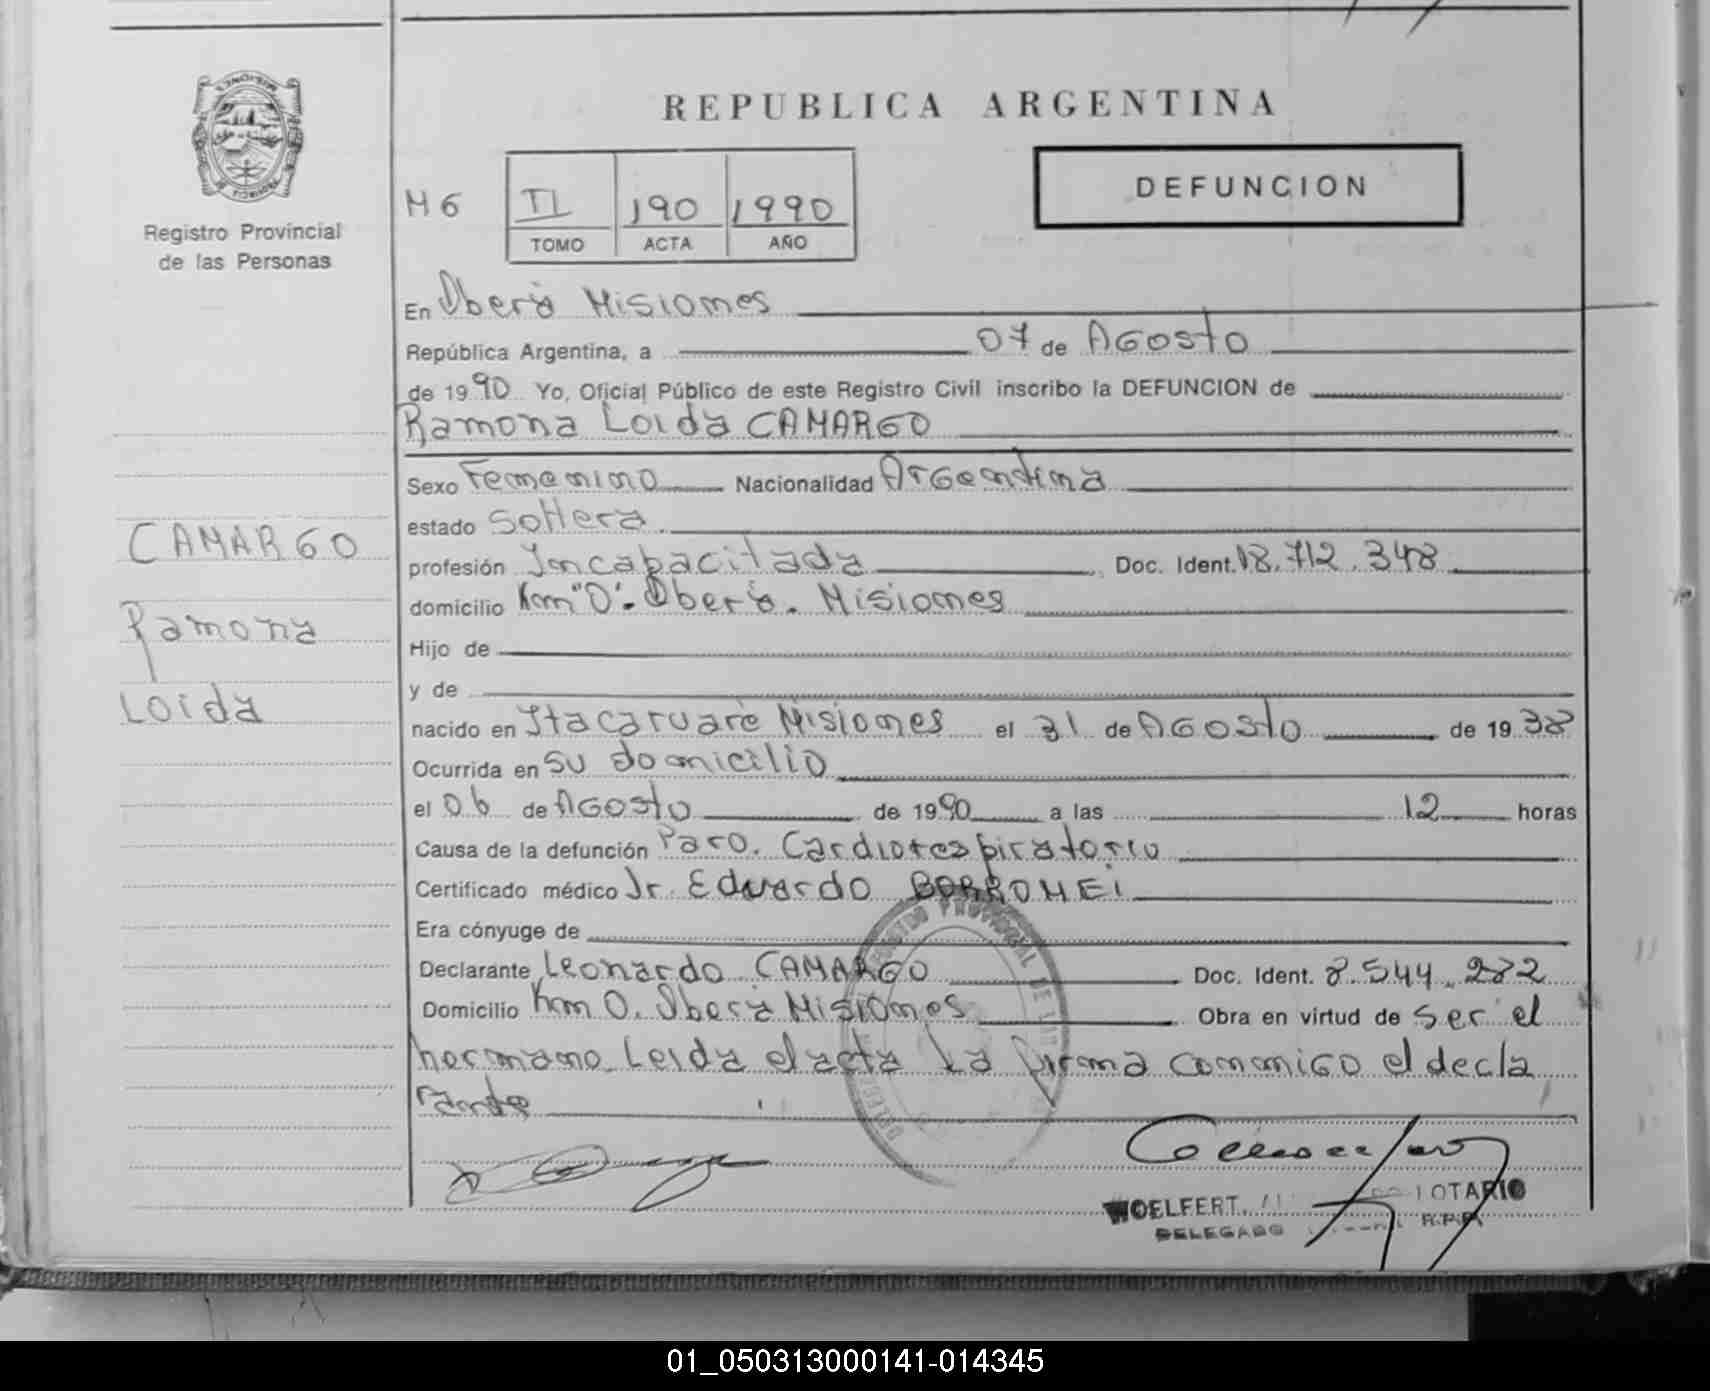 REPUBLICA ARGENTINA
DEFUNCION
M 6
II 190 1990
TOMO ACTA AÑO
Registro Provincial
de las Personas
En Oberá Misiones
República Argentina, a 07 de Agosto
de 1990 Yo, Oficial Público de este Registro Civil inscribo la DEFUNCION de
Ramona Loida CAMARGO
Sexo Femenino Nacionalidad Argentina
estado Soltera
CAMARGO
profesión Incapacitada Doc. Ident. 18.712.348
domicilio Km "0". Oberá. Misiones
Ramona
Hijo de
y de
Loida
nacido en Itacaruaré Misiones el 31 de Agosto de 1938
Ocurrida en su domicilio
el 06 de Agosto de 1990 a las 12 horas
Causa de la defunción Paro. Cardiorespiratorio
Certificado médico Dr. Eduardo BORROMEI
Era cónyuge de
Declarante Leonardo CAMARGO Doc. Ident. 8.544.282
Domicilio Km 0. Oberá Misiones Obra en virtud de ser el
hermano. Leida el acta la firma conmigo el decla
rante
REGISTRO PROVINCIAL DE LAS
WOELFERT
DELEGADO R.P.P.
01_050313000141-014345